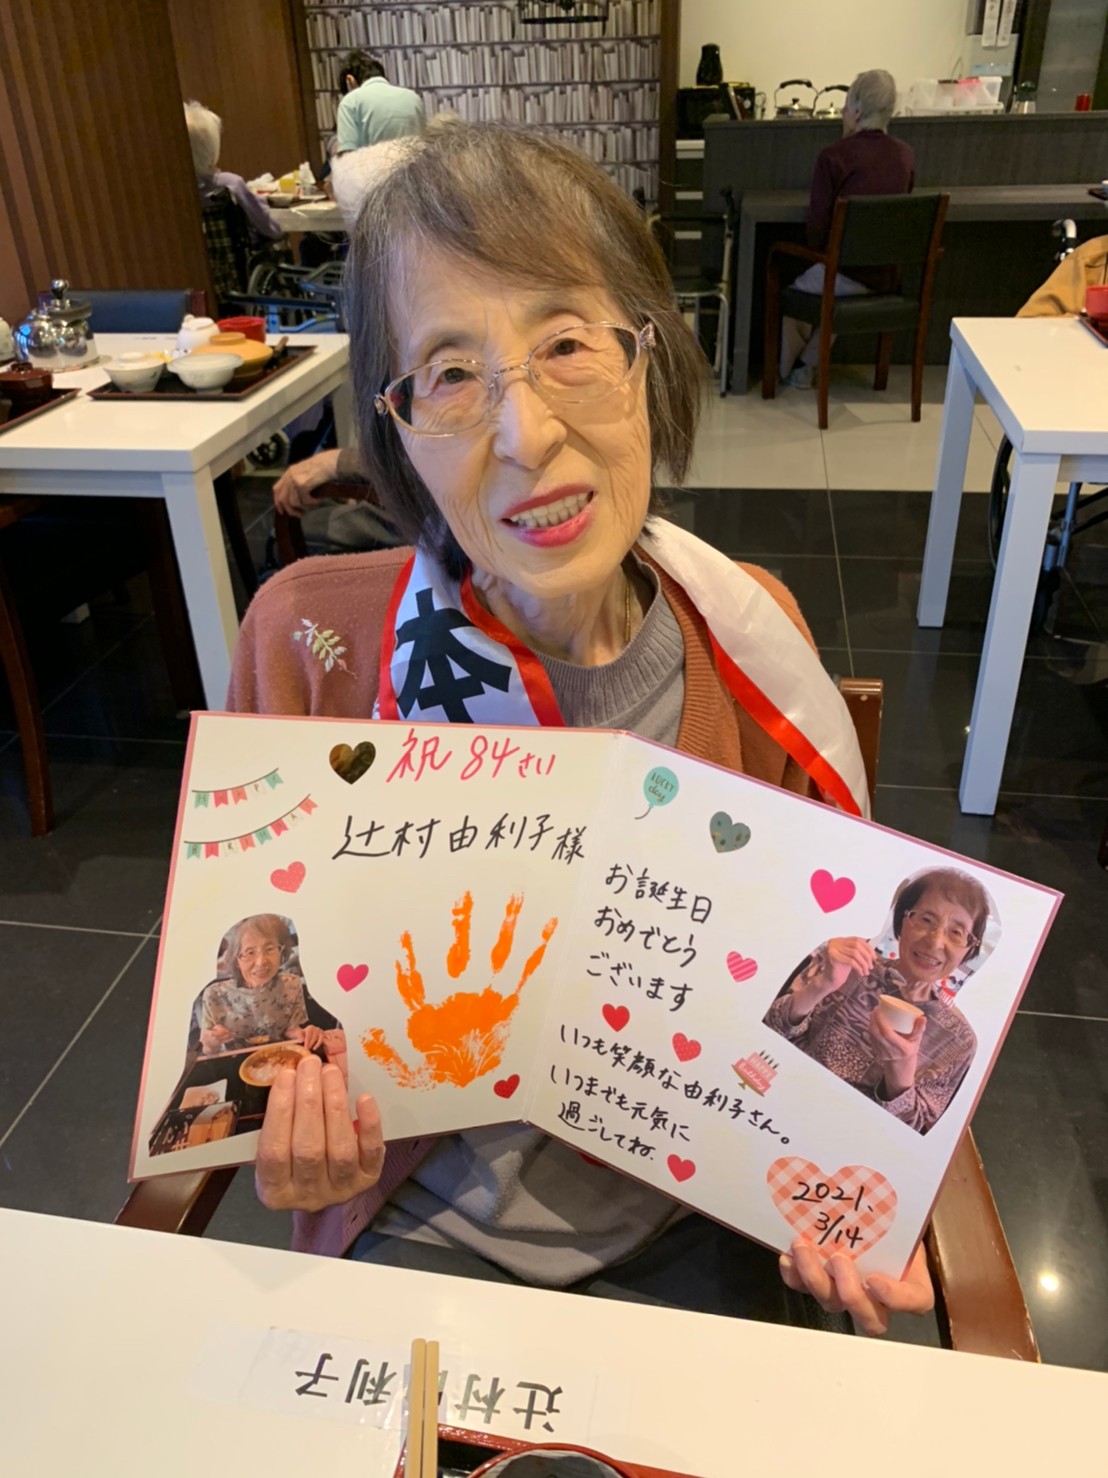 本
祝 84さい
辻村由利子様
HAPPY
BIRTHDAY
LUCKY
day
お誕生日
おめでとう
ございます
いつも笑顔な由利子さん。
いつまでも元気に
過ごしてね.
2021.
3/14
辻村 利子